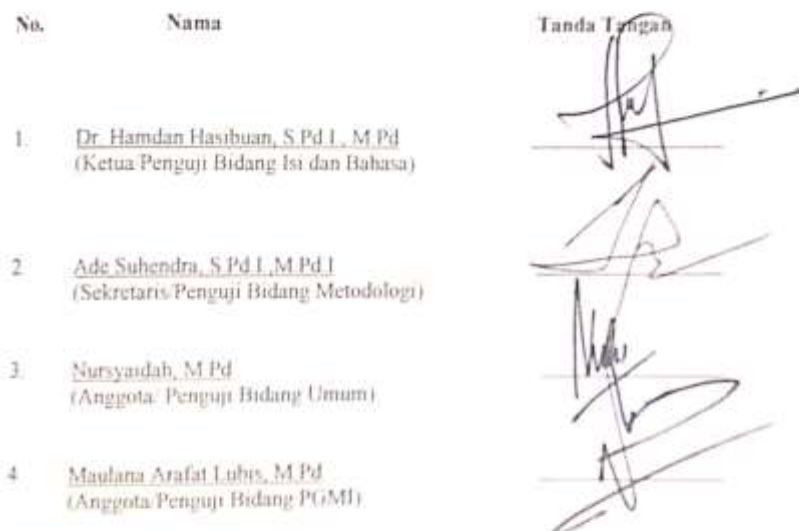 No. Nama Tanda Tangan
1. Dr. Hamdan Hasibuan, S.Pd.I., M.Pd
(Ketua/Penguji Bidang Isi dan Bahasa)
2. Ade Suhendra, S.Pd.I.,M.Pd.I
(Sekretaris/Penguji Bidang Metodologi)
3. Nursyaidah, M.Pd
(Anggota/ Penguji Bidang Umum)
4. Maulana Arafat Lubis, M.Pd
(Anggota/Penguji Bidang PGMI)